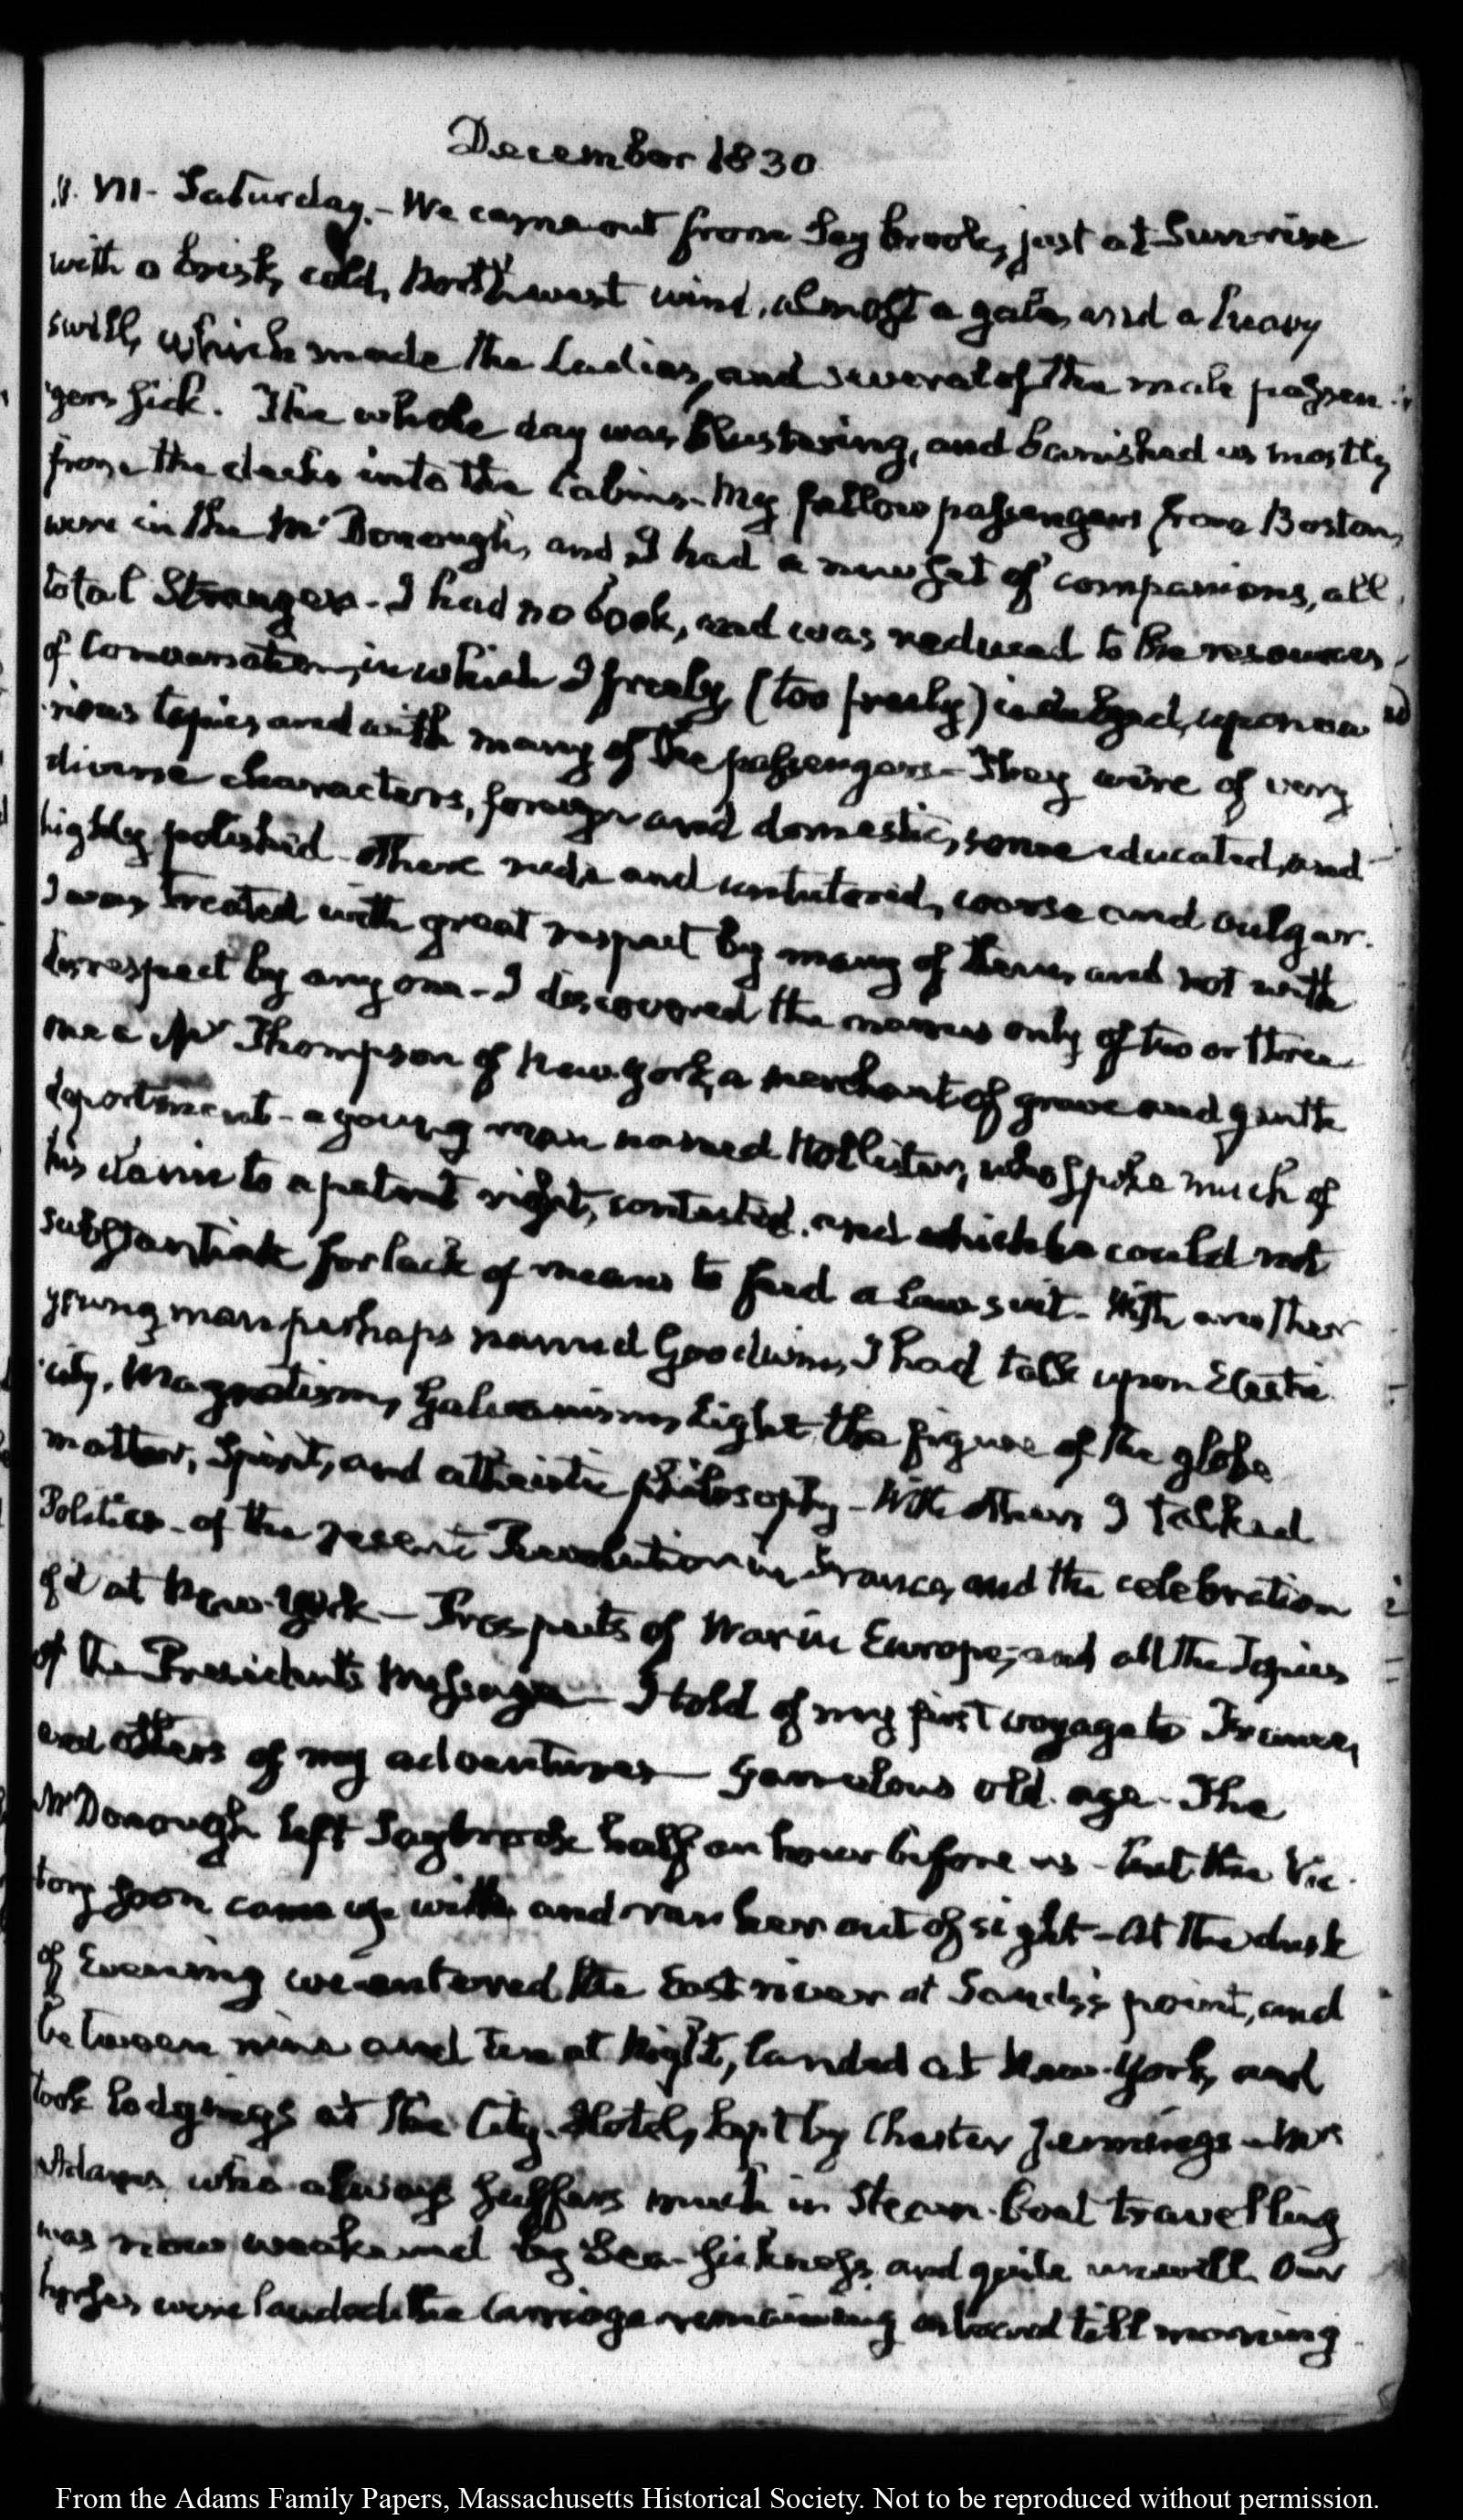 December 1830
11. VII. Saturday. - We came out from Saybrook, just at Sunrise
with a brisk, cold, North west wind, almost a gale, and a heavy
swell, which made the Ladies, and several of the male passen-
gers sick. The whole day was blustering, and banished us mostly
from the decks into the Cabins - My fellow passengers from Boston,
were in the McDonough, and I had a new set of companions, all
total Strangers - I had no book, and was reduced to the resources
of Conversation, in which I freely, (too freely) indulged, upon va-
rious topics, and with many of the passengers - They were of very
diverse characters, foreign and domestic, some educated, and
highly polished - others rude and untutored, coarse and vulgar.
I was treated with great respect by many of them, and not with
disrespect by any one - I discovered the names only of two or three
one a Mr Thompson of New-York, a merchant of grave and gentle
deportment - a young man named Hollister, who spoke much of
his claim to a patent right, contested, and which he could not
substantiate for lack of means to feed a lawsuit - With another
young man perhaps named Goodwin, I had talk upon Electri-
city, Magnetism, Galvanism, Light, the figure of the globe
matter, Spirit, and atheistic philosophy - With others I talked
Politics - of the recent Revolution in France, and the celebration
of it at New-York - Prospects of War in Europe; and all the Topics
of the President's Message - I told of my first voyage to France,
and others of my adventures - Garrulous old age - The
McDonough left Saybrook half an hour before us - but the Vic-
tory soon came up with and ran her out of sight - At the dusk
of Evening we entered the East river at Sands's point, and
between nine and ten at Night, landed at New-York, and
took lodgings at the City-Hotel, kept by Chester Jennings - Mrs
Adams who always suffers much in Steam-boat travelling
was now weakened by Sea-sickness, and quite unwell. Our
horses were landed, the Carriage remaining on board till morning
From the Adams Family Papers, Massachusetts Historical Society. Not to be reproduced without permission.